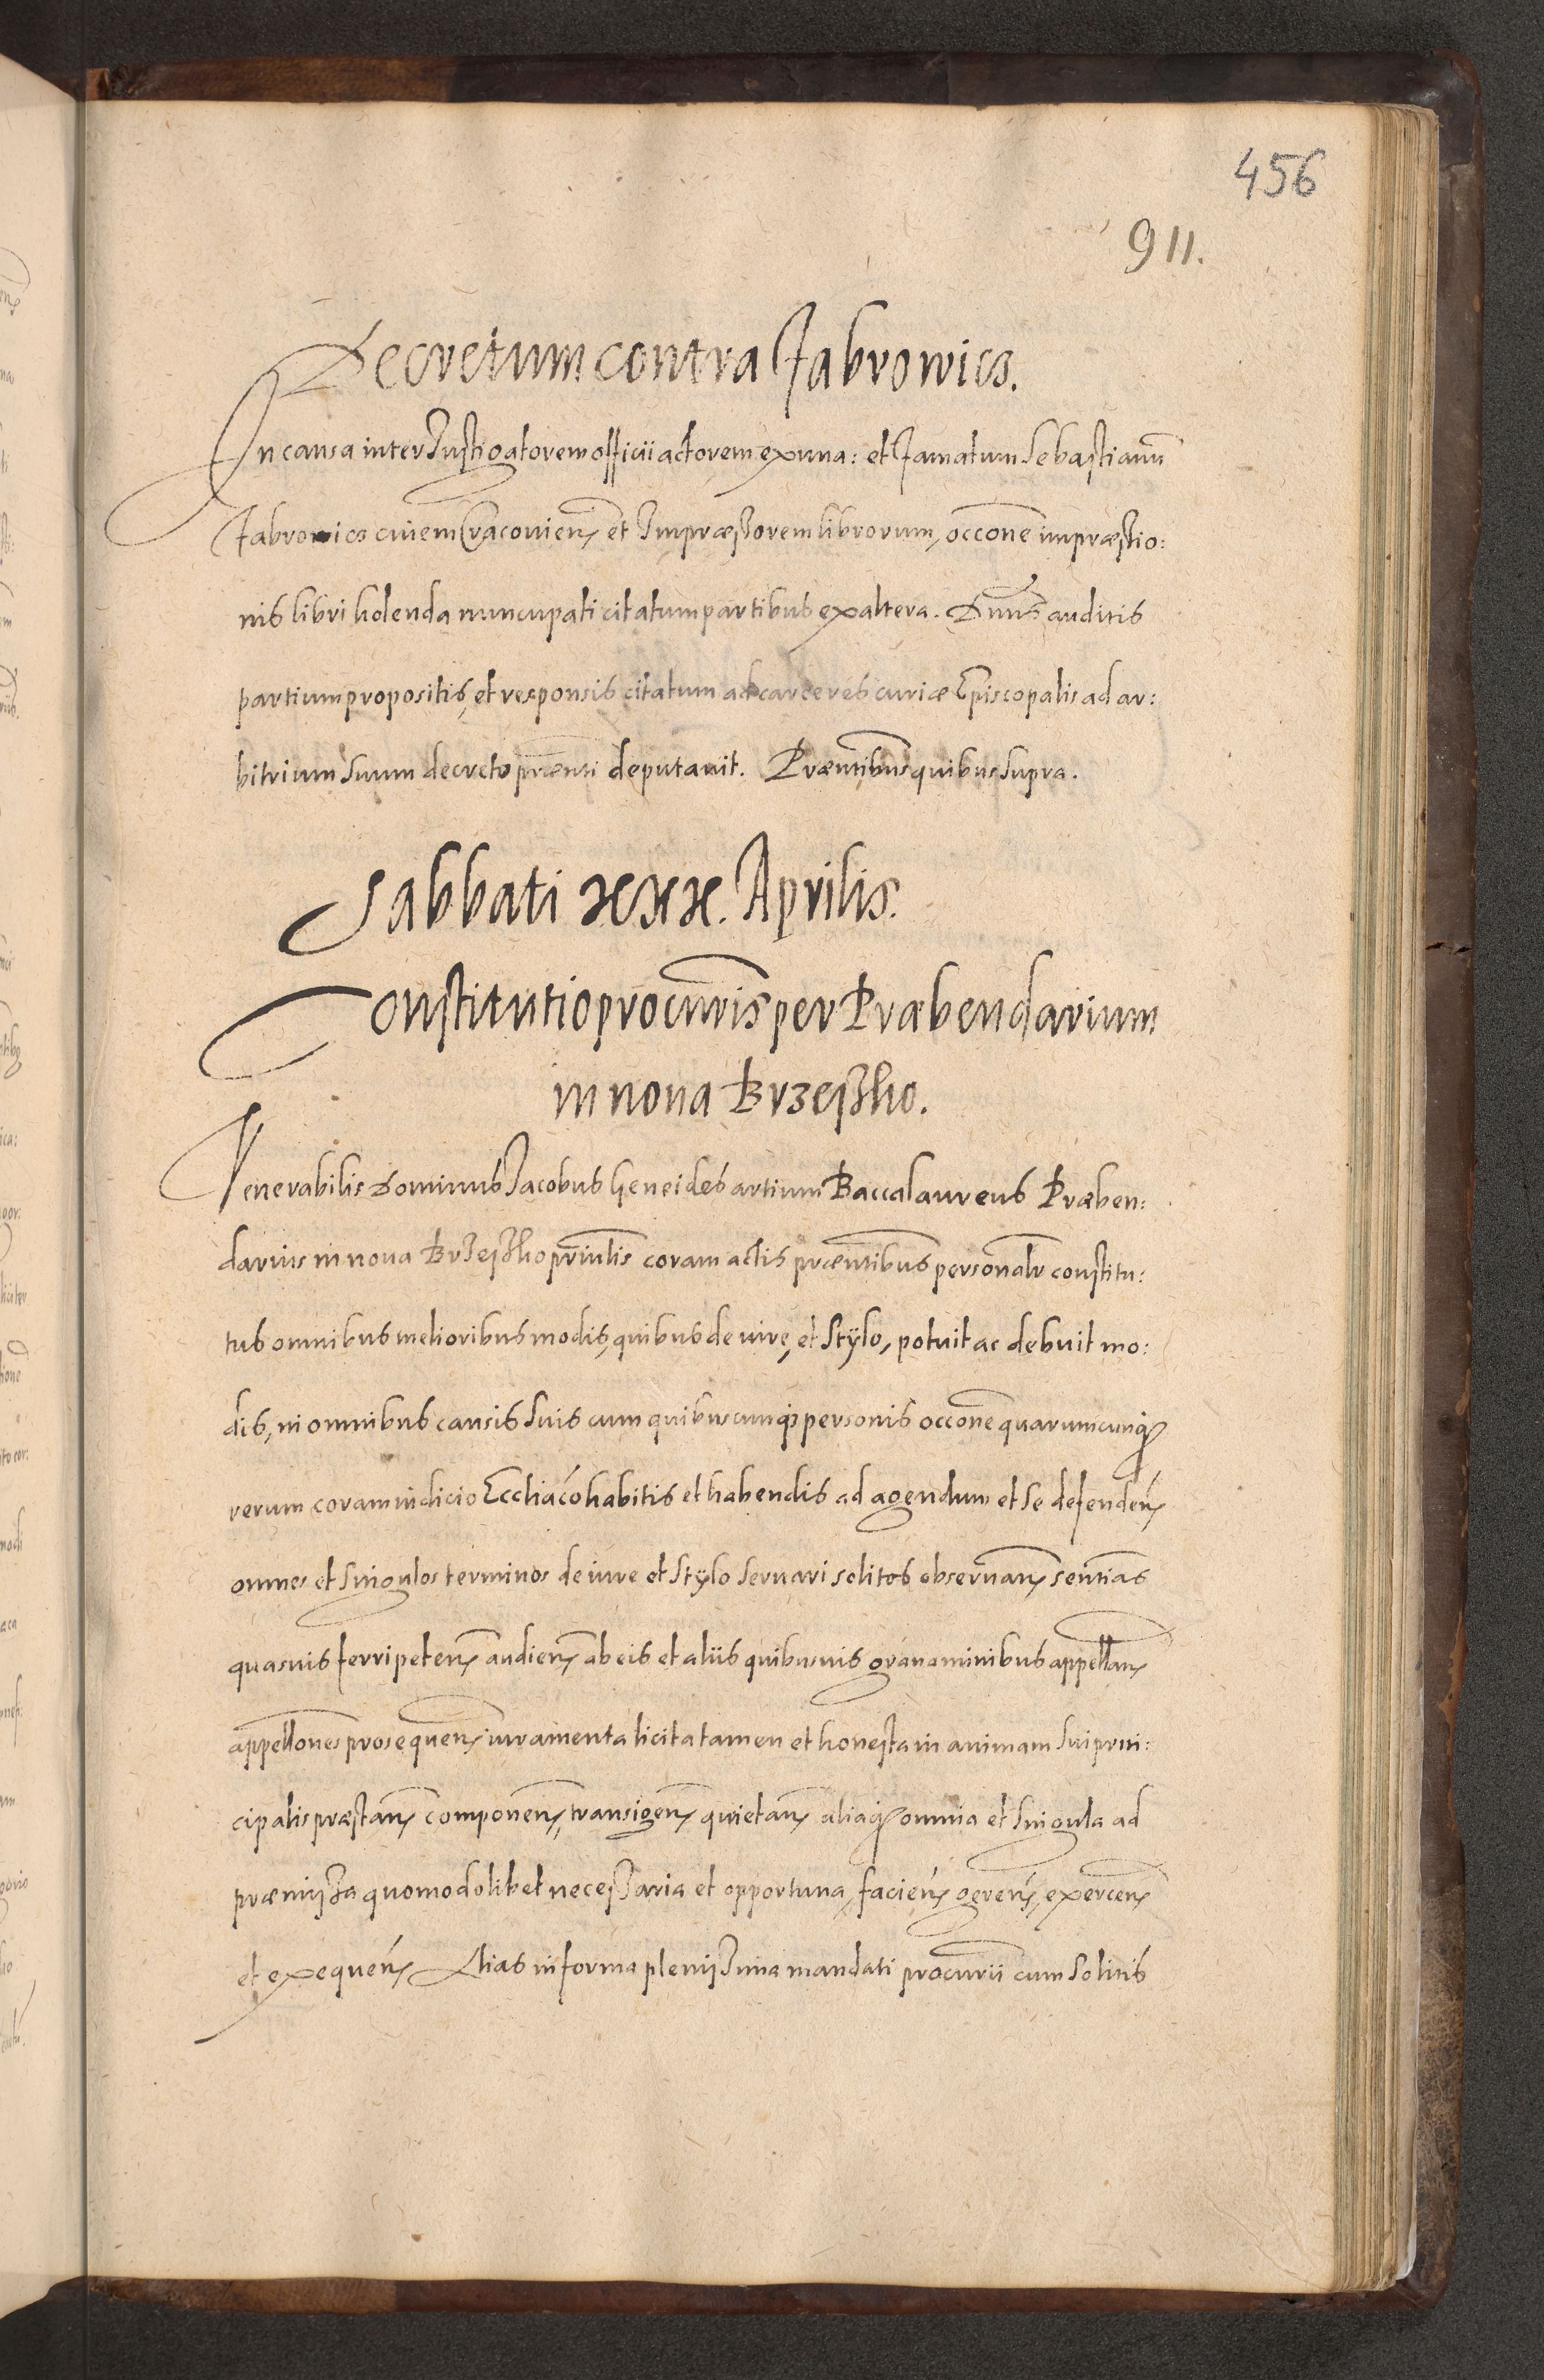 456
911.
Decretum contra Fabrowicz.
In causa inter Instigatorem officii actorem ex una: et famatum Sebastianum̃
Fabrowicz ciuem Cracouieñ et Impraessorem librorum, occõne impraessio:
nis libri kolenda nuncupati citatum partibus ex altera. Dñus auditis
partium propositis, et responsis citatum ad carceres curiæ Episcopalis ad ar:
bitrium suum decreto præñti deputauit. Præñtibus quibus supra.
Sabbati xxx. Aprilis.
Constitutio procuris per Præbendarium
in noua Brzessko.
Venerabilis dominus Jacobus Geneides artium Baccalaureus Præben:
darius in noua Brzessko priñlis coram actis præñtibus personalr constitu:
tus omnibus melioribus modis, quibus de iure, et stÿlo, potuit ac debuit mo:
dis, in omnibus causis suis cum quibuscunqꝫ personis occõne quarumcunqꝫ
rerum coram iudicio Eccliãco habitis et habendis ad agendum et se defendeñ
omnes et singulos terminos de iure et stÿlo seruari solitos obseruañ señtias
quasuis ferri peteñ audieñ ab eis et aliis quibusuis grauaminibus appellañ
appellões prosequeñ iuramenta licita tamen et honesta in animam sui prin:
cipalis præstañ componeñ, transigeñ quietañ aliaqꝫ omnia et singula ad
præmissa quomodolibet necessaria et opportuna, facieñ gereñ, exerceñ
et exequeñ Alias in forma plenissima mandati procurii cum solitis